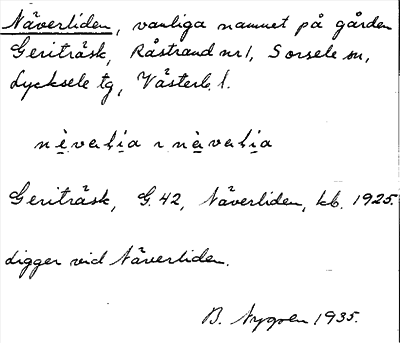 Näverliden, vanliga namnet på gården
Geriträsk, Råstrand nr 1, Sorsele sn,
Lycksele tg, Västerb. l.
nèvalia ɿ nàvalia
Geriträsk, G. 42, Näverliden, kb. 1925.
Ligger vid Näverliden.
B. Nygren 1935.